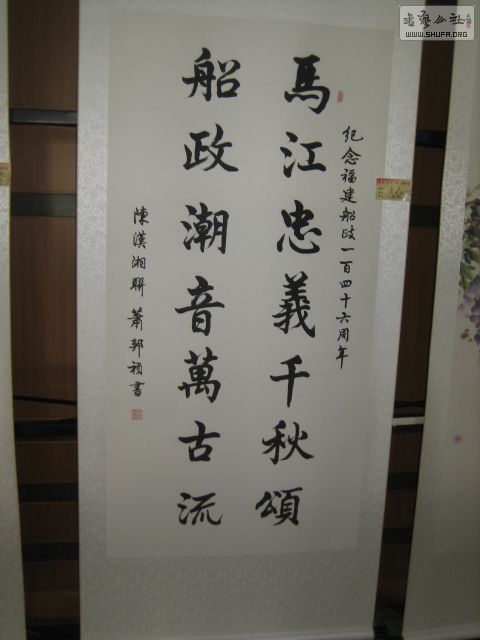 紀念福建船政一百四十六周年
馬江忠義千秋頌
船政潮音萬古流
陳漢湘聯 蕭邦禎書
書藝公社
WWW.SHUFA.ORG